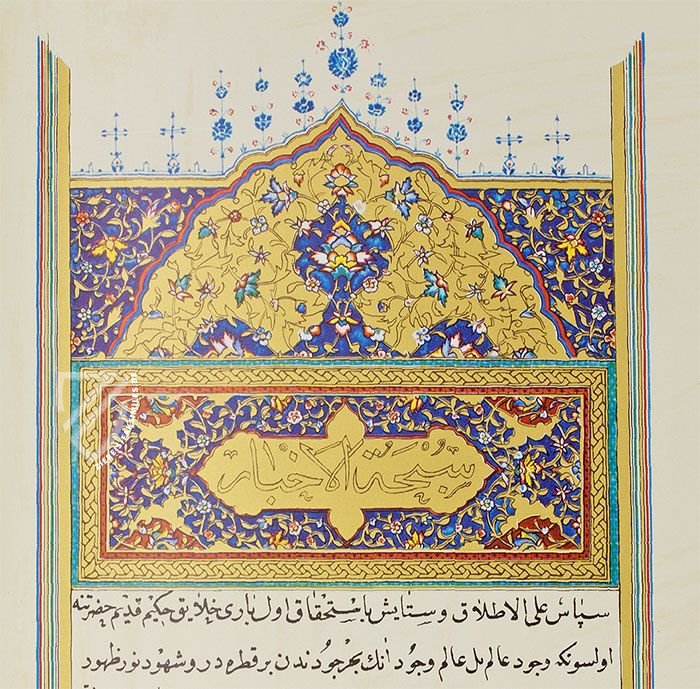 سُبْحَةُ الْاَخْبَار
سپاس علی الاطلاق و ستایش باستحقاق اول باری خلایق حکیم قدیم حضرتنه
اولسونکه وجود عالم بل عالم وجود انك بحر جودندن بر قطره در و شهود نور ظهور